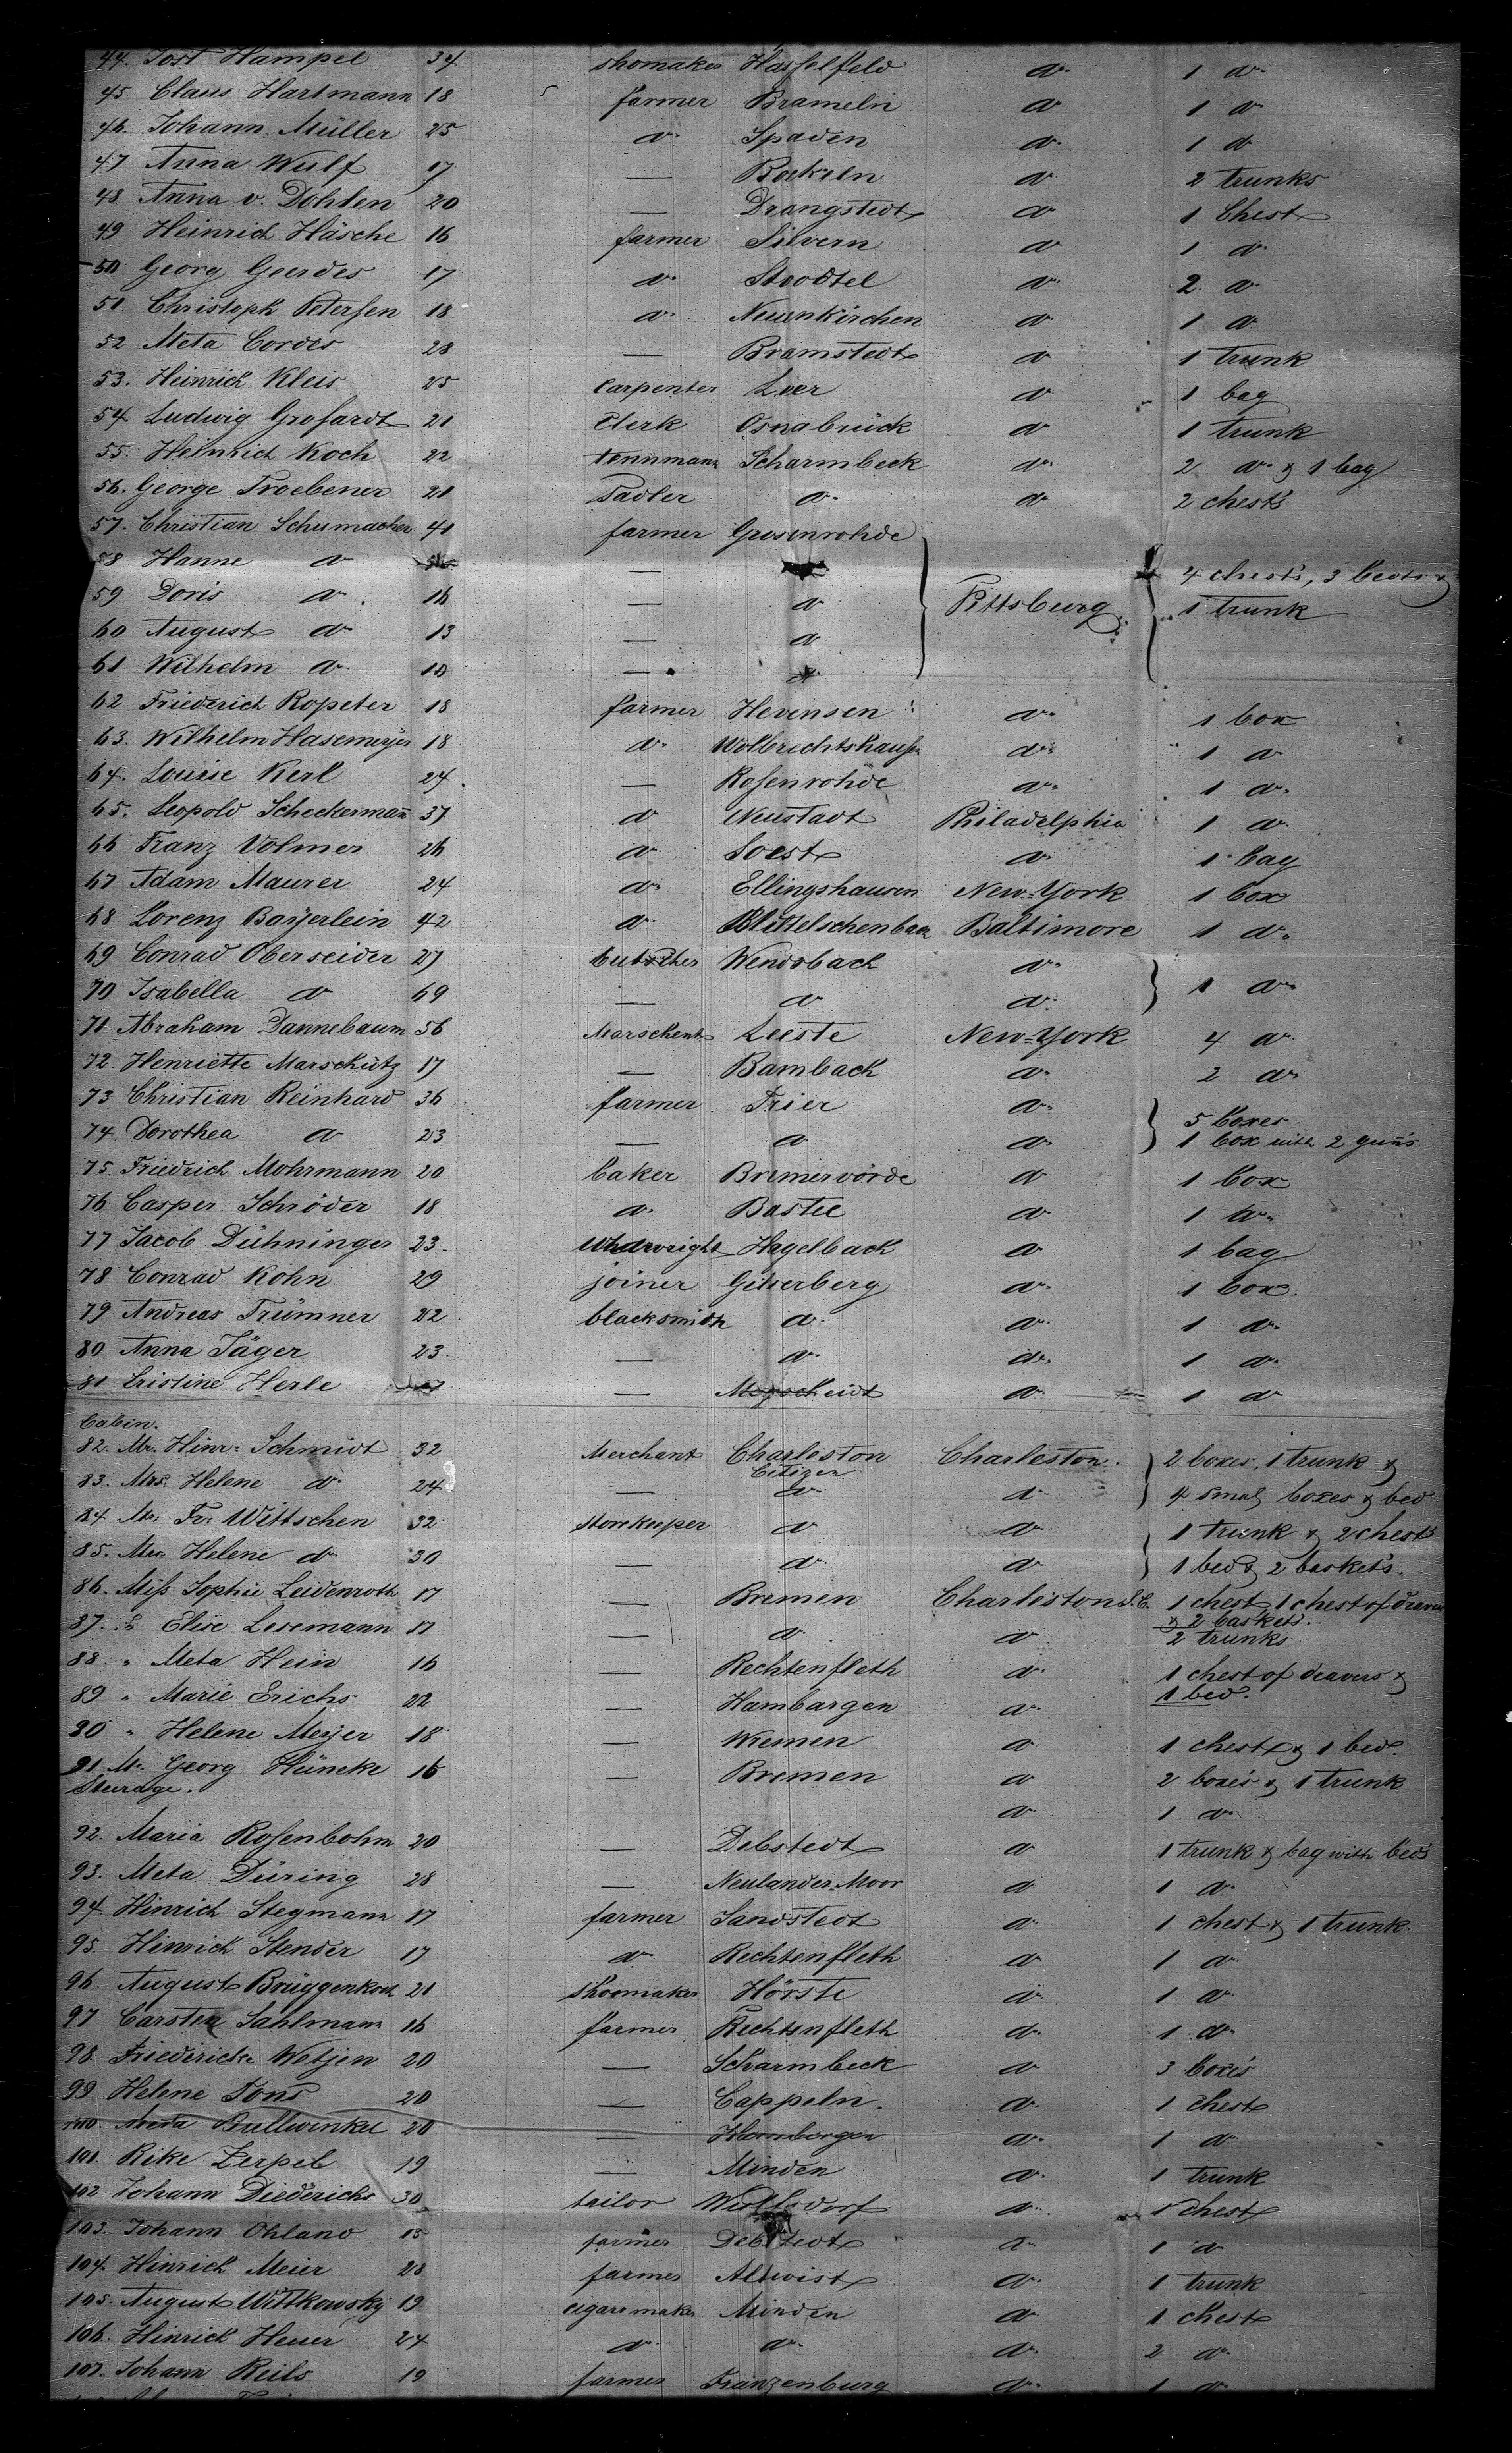 44. Jost Hampel 34 shomaker Hasselfeld do. 1 do.
45 Claus Hartmann 18 farmer Brameln do 1 do
46. Johann Müller 25 do. Spaden do. 1 do
47 Anna Wulf 17 — Bockeln do 2 trunks
48 Anna v. Dohlen 20 — Drangstedt do 1 Chest
49 Heinrich Häsche 16 farmer Silvern do 1 do
50 Georg Geerdes 17 do. Stoodtel do. 2. do.
51. Christoph Petersen 18 do. Neuenkirchen do 1 do
52 Meta Cordes 28 — Bramstedt do 1 trunk
53. Heinrich Kleis 25 carpenter Leer do 1 bag
54. Ludwig Grofardt 21 Clerk Osnabrück do 1 trunk
55. Heinrich Koch 22 Scharmbeck do. 2 do. & 1 bag
56. George Troebener 21 Sadler do. do 2 chests
57. Christian Schumacher 41 farmer Grosenrohde
58 Hanne do — Pittsburg 4 chests, 3 beds &
59 Doris do. 16 — do 1 trunk
60 August do 13 — do
61 Wilhelm do. 10 —
62 Friederich Ropeter 18 farmer Hevensen do. 1 box
63. Wilhelm Hasemeyer 18 do. Wolbrechtshausen do. 1 do
64. Louise Kerl 24. — Rosenrohde do. 1 do.
65. Leopold Scheckermann 37 do Neustadt Philadelphia 1 do.
66 Franz Volmer 26 do. Soest do. 1 bag
67 Adam Maurer 24 do. Ellingshausen New-York 1 box
68 Lorenz Bayerlein 42 do. Baltimore 1 do.
69 Conrad Oberseider 27 butcher Wendsbach do. 1 do.
70 Isabella do 69 — do do.
71 Abraham Dannebaum 56 Marschent Leeste New-York 4 do.
72. Henriette Marschütz 17 — Bamback do. 2 do.
73 Christian Reinhard 36 farmer Trier do. 5 boxes
74 Dorothea do 23 — do do. 1 box with 2 guns
75. Friedrich Mohrmann 20 baker Bremervörde do 1 box
76 Casper Schröder 18 do. Bastee do 1 do.
77 Jacob Dühninger 23. Hagelback do 1 bag
78 Conrad Kohn 29 joiner Geiserberg do. 1 box.
79 Andreas Trümner 22 blacksmith do. do. 1 do.
80 Anna Jäger 23. — do. do. 1 do.
81 Cristine Herle — Morscheidt do. 1 do
Cabin.
82. Mr. Hinr. Schmidt 32 Merchant Charleston Charleston. 2 boxes, 1 trunk &
Citizen
83. Mrs. Helene do. 24 — do do 4 small boxes & bed
84. Mr. Fr. Wittschen 32 storekeeper do do 1 trunk & 2 chests
85. Mrs. Helene do. 30 — do. do 1 bed & 2 baskets.
86. Miss Sophie Leidenroth 17 — Bremen Charleston S.C. 1 chest, 1 chest of drawers
& 2 baskets.
87. " Elise Lesemann 17 — do do 2 trunks
88 " Meta Hein 16 — Rechtenfleth do. 1 chest of deavers &
89 " Marie Erichs 22 — Hambargen do. 1 bed.
90 " Helene Meyer 18 — Wremen do 1 chest & 1 bed.
91 Mr. Georg Hüneke 16 — Bremen do 2 boxes & 1 trunk
Steerage.
do 1 do
92. Maria Rosenbohm 20 — Debstedt do 1 trunk & bag with beds
93. Meta Düring 28 — Neulander Moor do 1 do.
94. Hinrich Stegmann 17 farmer Sandstedt do. 1 chest & 1 trunk
95. Hinrich Stender 17 do Rechtenfleth do 1 do
96. August Brüggenkoch 21 Shoomaker Hörste do. 1 do.
97 Carsten Sahlmann 16 farmer Rechtenfleth do. 1 do.
98 Friedericke Wetjen 20 — Scharmbeck do 3 boxes
99 Helene Tons 20 — Cappeln. do. 1 chest
100. Meta Bullwinkel 20 — Hambergen do. 1 do
101. Rike Zerpel 19 — Minden do. 1 trunk
102 Johann Diederichs 30 tailor Wollsdorf do. 1 chest
103. Johann Ohland 15 farmer Debstedt do. 1 do
104. Hinrich Meier 28 farmer Altwist do. 1 trunk
105. August Wittkowsky 19 cigarrmaker Minden do 1 chest
106. Hinrich Heuer 24 do. do. do. 2 do.
107. Johann Reils 19 farmer Franzenburg do. 1 do.